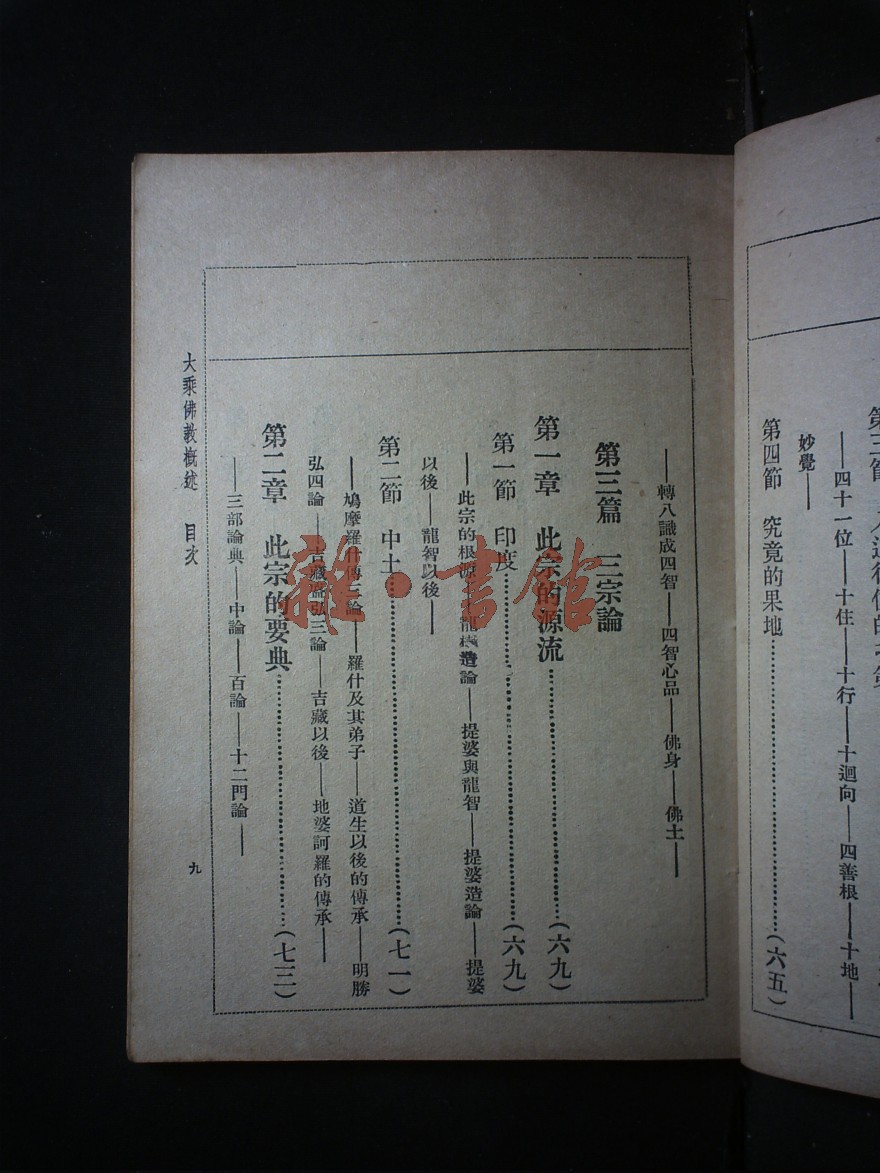 第四節　究竟的果地…………(六五)
——四十一位——十住——十行——十迴向——四善根——十地——
妙覺——
——轉八識成四智——四智心品——佛身——佛土——
第三篇　三宗論
第一章　此宗的源流…………(六九)
第一節　印度…………(六九)
——此宗的根源——龍樹造論——提婆與龍智——提婆造論——提婆
以後——龍智以後——
第二節　中土…………(七一)
——鳩摩羅什傳三論——羅什及其弟子——道生以後的傳承——明勝
弘四論——吉藏盛弘三論——吉藏以後——地婆訶羅的傳承——
第二章　此宗的要典…………(七三)
——三部論典——中論——百論——十二門論——
大乘佛教概述　目次
九
雜·書館